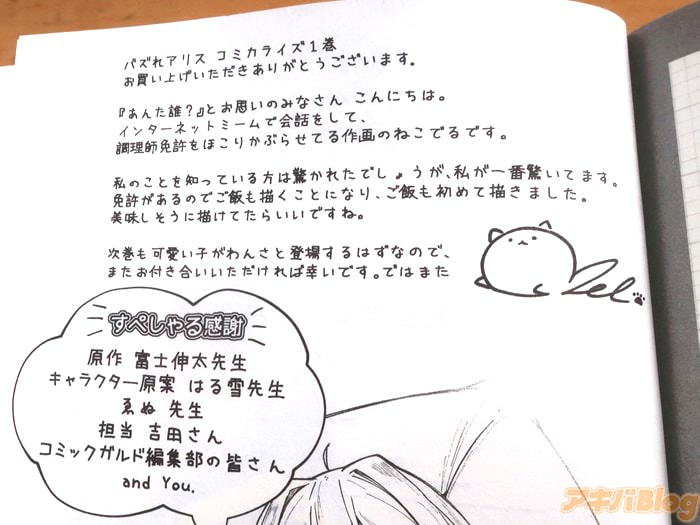 バズれアリス コミカライズ1巻
お買い上げいただきありがとうございます。
『あんた誰?』とお思いのみなさん こんにちは。
インターネットミームで会話をして、
調理師免許をほこりかぶらせてる作画のねこでるです。
私のことを知っている方は驚かれたでしょうが、私が一番驚いてます。
免許があるのでご飯も描くことになり、ご飯も初めて描きました。
美味しそうに描けてたらいいですね。
次巻も可愛い子がわんさと登場するはずなので、
またお付き合いいただければ幸いです。ではまた
すぺしゃる感謝
原作 富士伸太先生
キャラクター原案 はる雪先生
ゑぬ 先生
担当 吉田さん
コミックガルド編集部の皆さん
and You.
アキバBlog